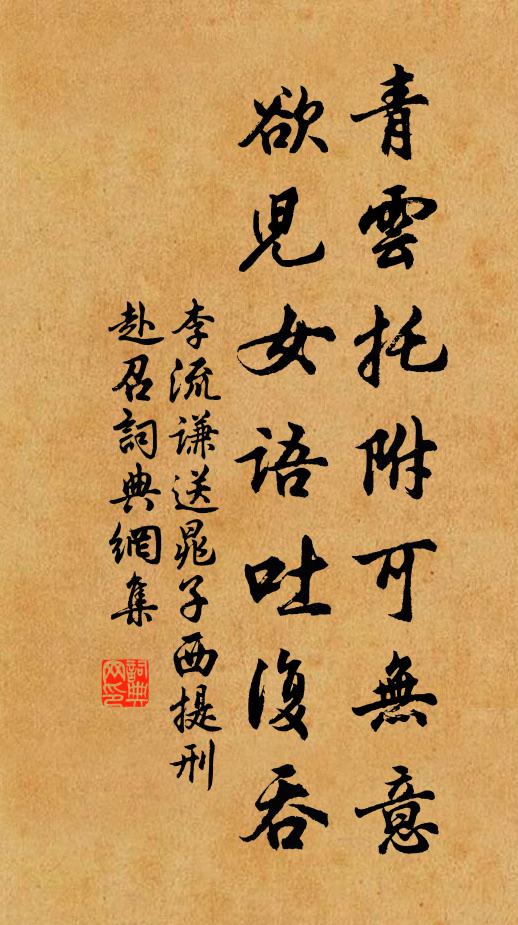 青雲托附可無意
欲兒女語吐復吞
李流謙送晁子西提刑
赴召詞典網集
詞典網印